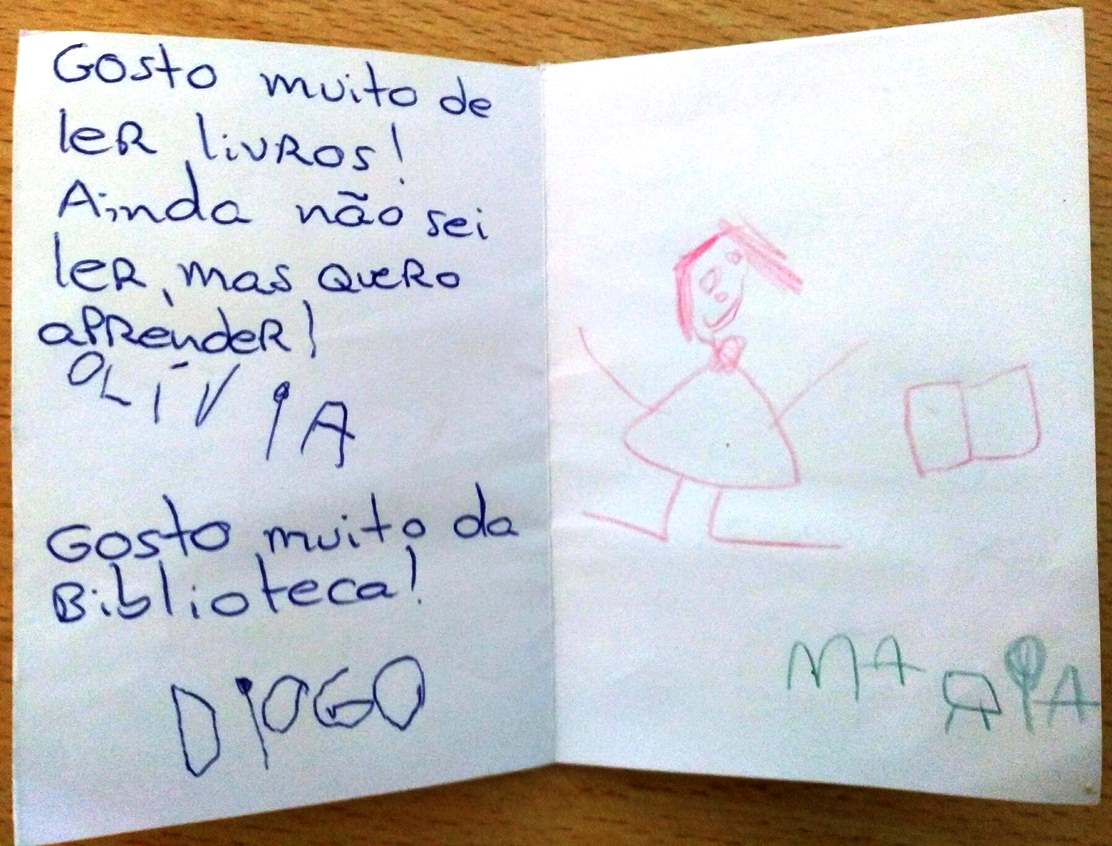 Gosto muito de
ler livros!
Ainda não sei
ler, mas quero
aprender!
OLÍVIA
Gosto muito da
Biblioteca!
DIOGO
MARIA